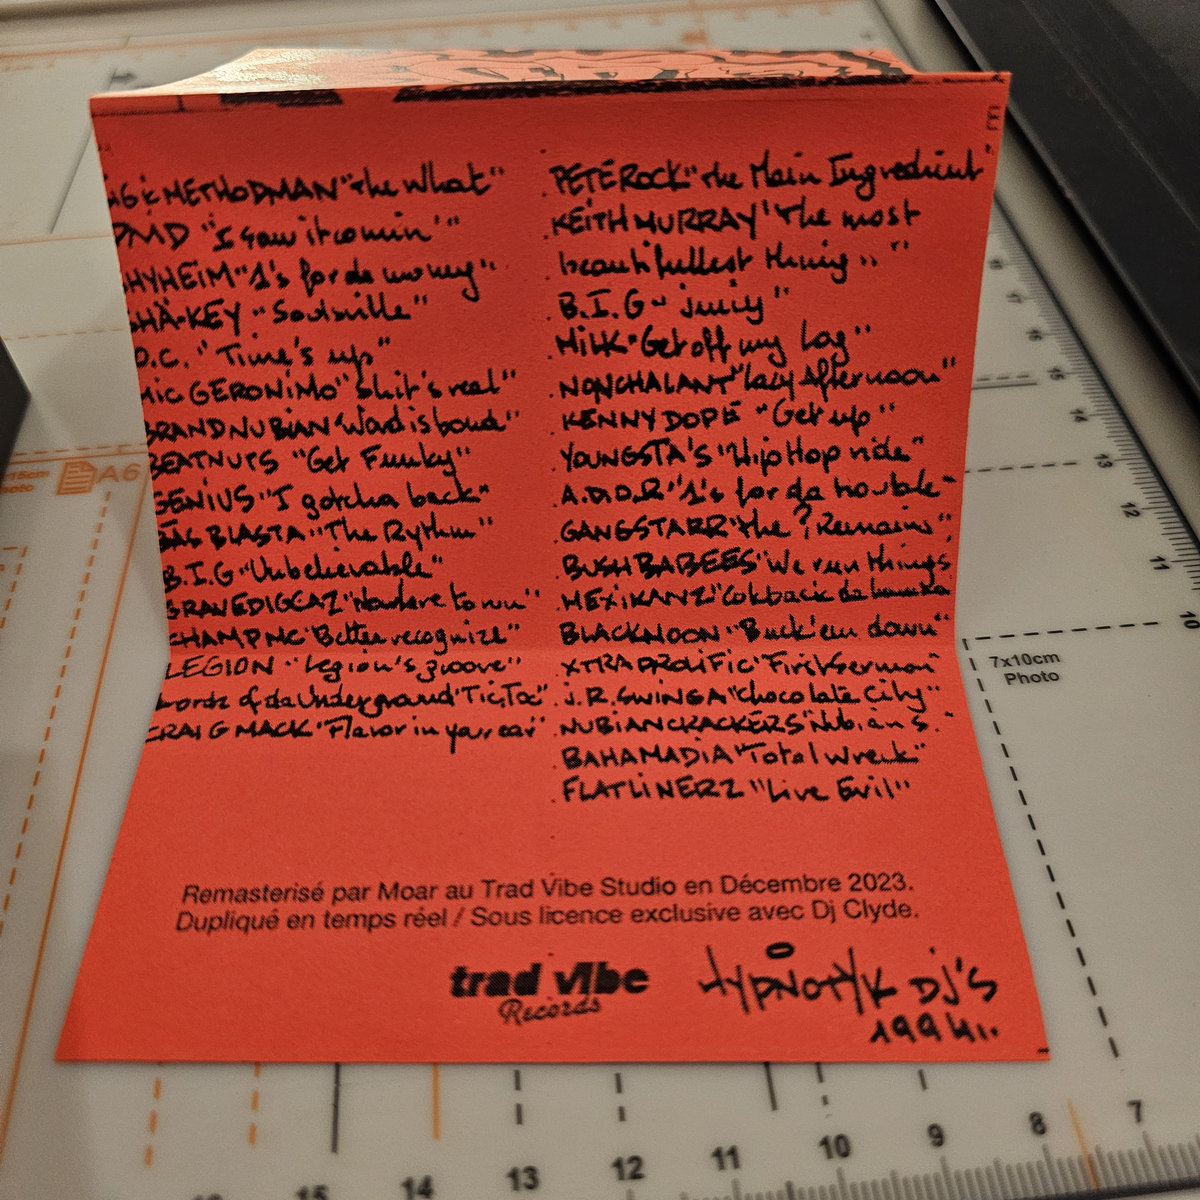 METHODMAN "the What"
PMD "I saw it comin'"
HYHEIM "1's for da money"
SHÄ-KEY "Soulville"
O.C. "Time's up"
MIC GERONIMO "Shit's real"
BRAND NUBIAN "Word is bond"
BEATNUTS "Get Funky"
GENIUS "I gotcha back"
BLASTA "The Rythm"
B.I.G "Unbelievable"
GRAVEDIGGAZ "Nowhere to run"
CHAMP MC "Better recognize"
LEGION "Legion's groove"
Lords of da Underground "Tic Toc"
CRAIG MACK "Flavor in your ear"
PETE ROCK "the Main Ingredient"
KEITH MURRAY "The most
beautifullest thing"
B.I.G - juicy"
MILK "Get off my log"
NONCHALANT "lazy Afternoon"
KENNY DOPE "Get up"
YOUNGSTA'S "Hip Hop ride"
A.D.O.R "1's for da trouble"
GANGSTARR "the ? Remains"
BUSH BABEES "We run things
MEXIKANZ
BLACKMOON "Buck'em down"
XTRA PROLIFIC "First Sermon"
J.R. SWINGA "Chocolate City"
NUBIAN CRACKERS "Nubian S."
BAHAMADIA "Total Wreck"
FLATLINERZ "Live Evil"
Remasterisé par Moar au Trad Vibe Studio en Décembre 2023.
Dupliqué en temps réel / Sous licence exclusive avec Dj Clyde.
trad vibe
Records
HYPNOTYK DJ'S
1994
A6
7x10cm
Photo
16
15
14
13
12
11
10
15
14
13
12
11
10
9
8
7